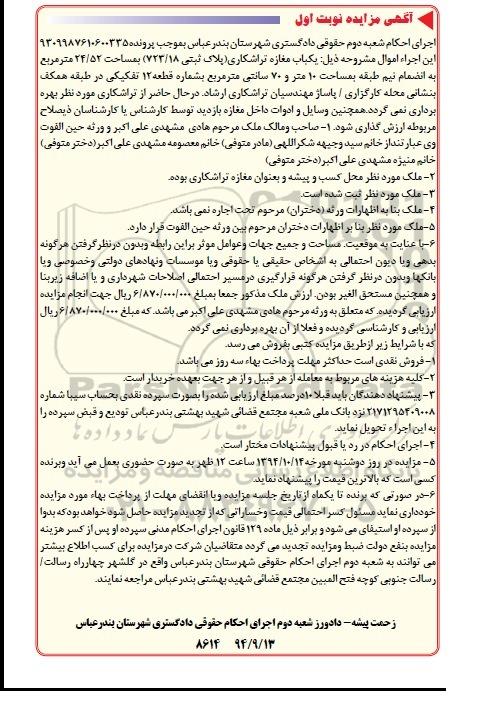 آگهی مزایده نوبت اول
اجرای احکام شعبه دوم حقوقی دادگستری شهرستان بندرعباس بموجب پرونده ۹۳۰۹۹۸۷۶۱۰۶۰۰۳۳۵
این اجراء اموال مشروحه ذیل: یکباب مغازه تراشکاری(پلاک ثبتی ۷۲۳/۱۸) بمساحت ۲۴/۵۲ مترمربع
به انضمام نیم طبقه بمساحت ۱۰ متر و ۷۰ سانتی مترمربع بشماره قطعه۱۲ تفکیکی در طبقه همکف
بنشانی محله کارگزاری / پاساژ مهندسیان تراشکاری ارشاد. درحال حاضر از تراشکاری مورد نظر بهره
برداری نمی گردد.همچنین وسایل و ادوات داخل مغازه بازدید توسط کارشناس یا کارشناسان ذیصلاح
مربوطه ارزش گذاری شود. ۱- صاحب ومالک ملک مرحوم هادی مشهدی علی اکبر و ورثه حین الفوت
وی عبارتنداز خانم سید وجیهه شکراللهی (مادر متوفی) خانم معصومه مشهدی علی اکبر(دختر متوفی)
خانم منیژه مشهدی علی اکبر(دختر متوفی)
۲- ملک مورد نظر محل کسب و پیشه و بعنوان مغازه تراشکاری بوده.
۳- ملک مورد نظر ثبت شده است.
۴- ملک بنا به اظهارات ورثه (دختران) مرحوم تحت اجاره نمی باشد.
۵-ملک مورد نظر بنا بر اظهارات دختران مرحوم بین ورثه حین الفوت قرار دارد.
۶-با عنایت به موقعیت، مساحت و جمیع جهات وعوامل موثر براین رابطه وبدون درنظرگرفتن هرگونه
بدهی ویا دیون احتمالی به اشخاص حقیقی یا حقوقی ویا موسسات ونهادهای دولتی وخصوصی ویا
بانکها وبدون درنظر گرفتن هرگونه قرارگیری درمسیر احتمالی اصلاحات شهرداری و یا اضافه زیربنا
و همچنین مستحق الغیر بودن. ارزش ملک مذکور جمعا بمبلغ ۶/۸۷۰/۰۰۰/۰۰۰ ریال جهت انجام مزایده
ارزیابی گردیده. که متعلق به ورثه مرحوم هادی مشهدی علی اکبر می باشد. که مبلغ ۶/۸۷۰/۰۰۰/۰۰۰ ریال
ارزیابی و کارشناسی گردیده و فعلا از آن بهره برداری نمی گردد.
که با شرایط زیر ازطریق مزایده کتبی بفروش می رسد.
۱-فروش نقدی است حداکثر مهلت پرداخت بهاء سه روز می باشد.
۲-کلیه هزینه های مربوط به معامله از هر قبیل و از هر جهت بعهده خریدار است.
۳- پیشنهاد دهندگان باید قبلا ۱۰درصد مبلغ ارزیابی شده را بصورت سپرده نقدی بحساب سیبا شماره
۲۱۷۱۲۹۵۴۰۹۰۰۸ نزد بانک ملی شعبه مجتمع قضائی شهید بهشتی بندرعباس تودیع و قبض سپرده را
به این اجراء تحویل نماید.
۴- اجرای احکام در رد یا قبول پیشنهادات مختار است.
۵- مزایده در روز دوشنبه مورخه۱۳۹۴/۱۰/۱۴ ساعت ۱۲ ظهر به صورت حضوری بعمل می آید وبرنده
کسی است که بالاترین قیمت را پیشنهاد نماید.
۶-در صورتی که برنده تا یکماه از تاریخ جلسه مزایده ویا انقضای مهلت از پرداخت بهاء مورد مزایده
خودداری نماید مسئول کسر احتمالی قیمت وخساراتی که از تجدید مزایده حاصل شود خواهد بود که بدوا
از سپرده او استیفای می شود و برابر ذیل ماده ۱۲۹ قانون اجرای احکام مدنی سپرده او پس از کسر هزینه
مزایده بنفع دولت ضبط ومزایده تجدید می گردد متقاضیان شرکت درمزایده برای کسب اطلاع بیشتر
می توانند به شعبه دوم اجرای احکام حقوقی شهرستان بندرعباس واقع در گلشهر چهارراه رسالت/
رسالت جنوبی کوچه فتح المبین مجتمع قضائی شهید بهشتی بندرعباس مراجعه نمایند.
زحمت پیشه- دادورز شعبه دوم اجرای احکام حقوقی دادگستری شهرستان بندرعباس
۹۴/۹/۱۳ ۸۶۱۴